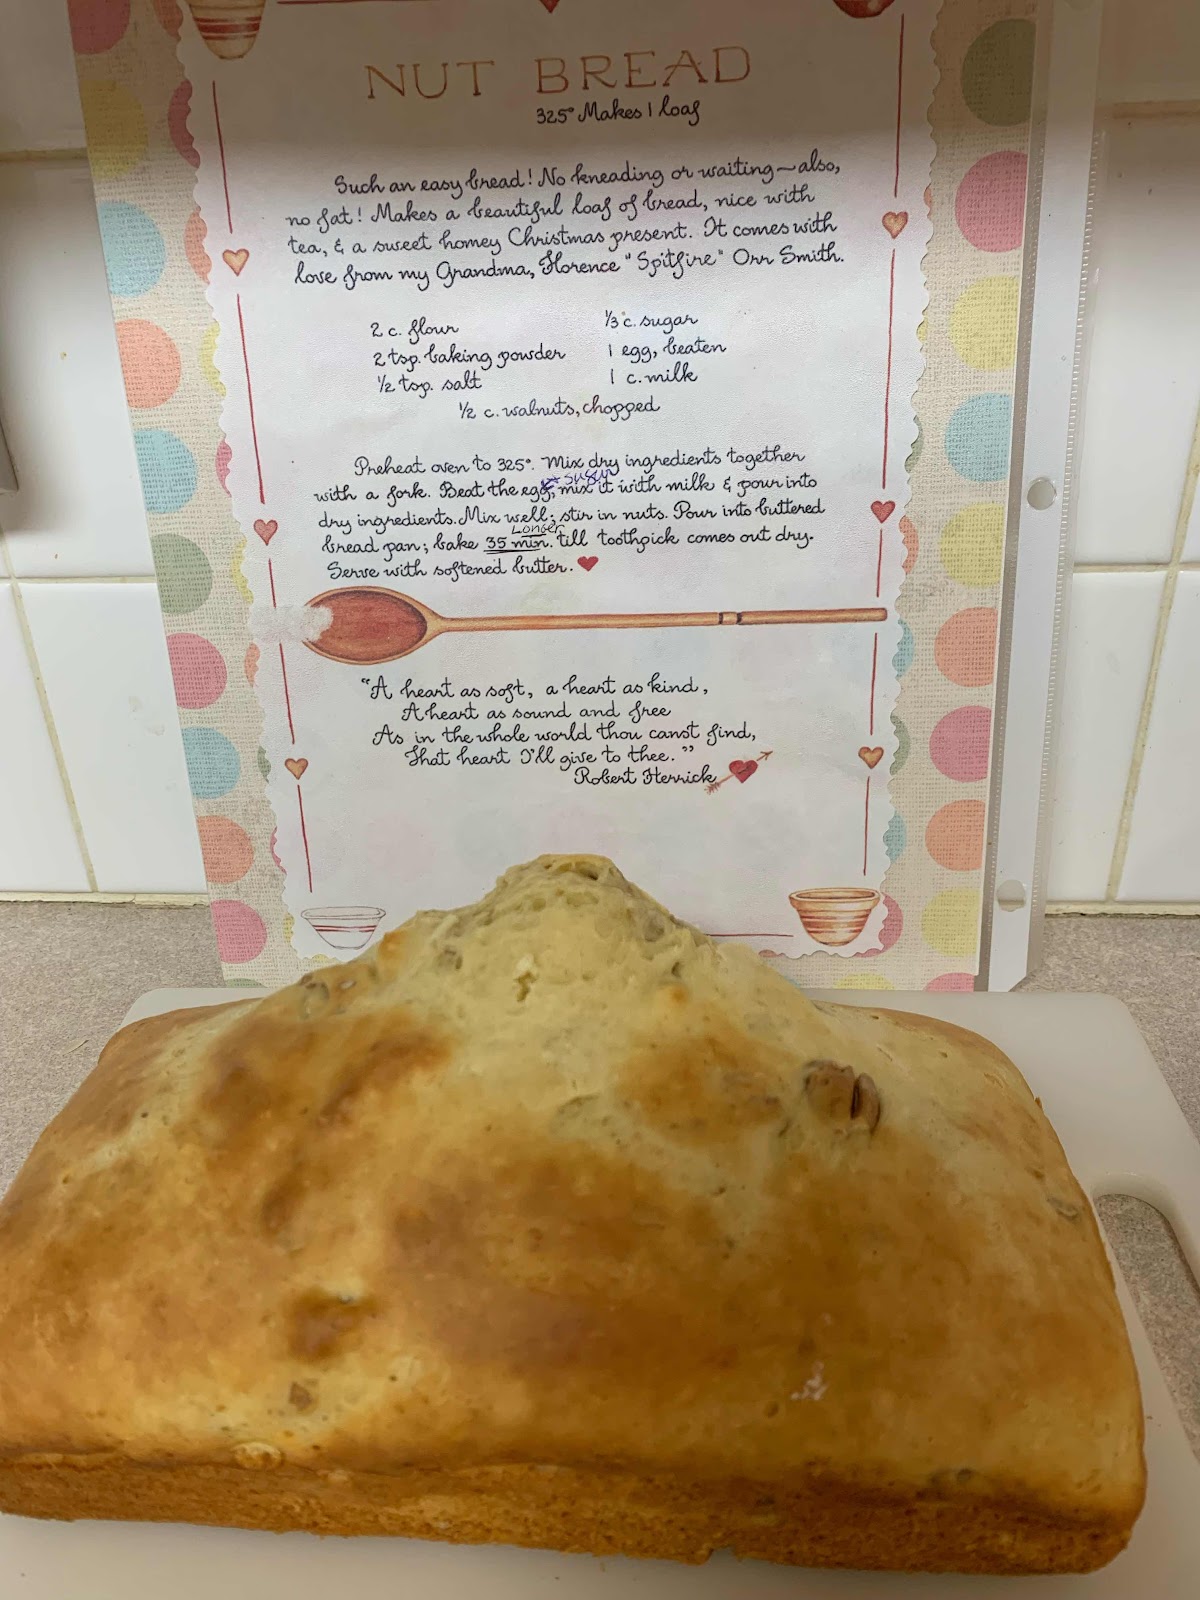 NUT BREAD
325° Makes 1 loaf
Such an easy bread! No kneading or waiting—also,
no fat! Makes a beautiful loaf of bread, nice with
tea, & a sweet homey Christmas present. It comes with
love from my Grandma, Florence "Spitfire" Orr Smith.
2 c. flour
2 tsp. baking powder
½ tsp. salt
⅓ c. sugar
1 egg, beaten
1 c. milk
½ c. walnuts, chopped
Preheat oven to 325°. Mix dry ingredients together
sugar
with a fork. Beat the egg; mix it with milk & pour into
dry ingredients. Mix well; stir in nuts. Pour into buttered
Longer
bread pan; bake 35 min. till toothpick comes out dry.
Serve with softened butter.
"A heart as soft, a heart as kind,
A heart as sound and free
As in the whole world thou canst find,
That heart I'll give to thee."
Robert Herrick